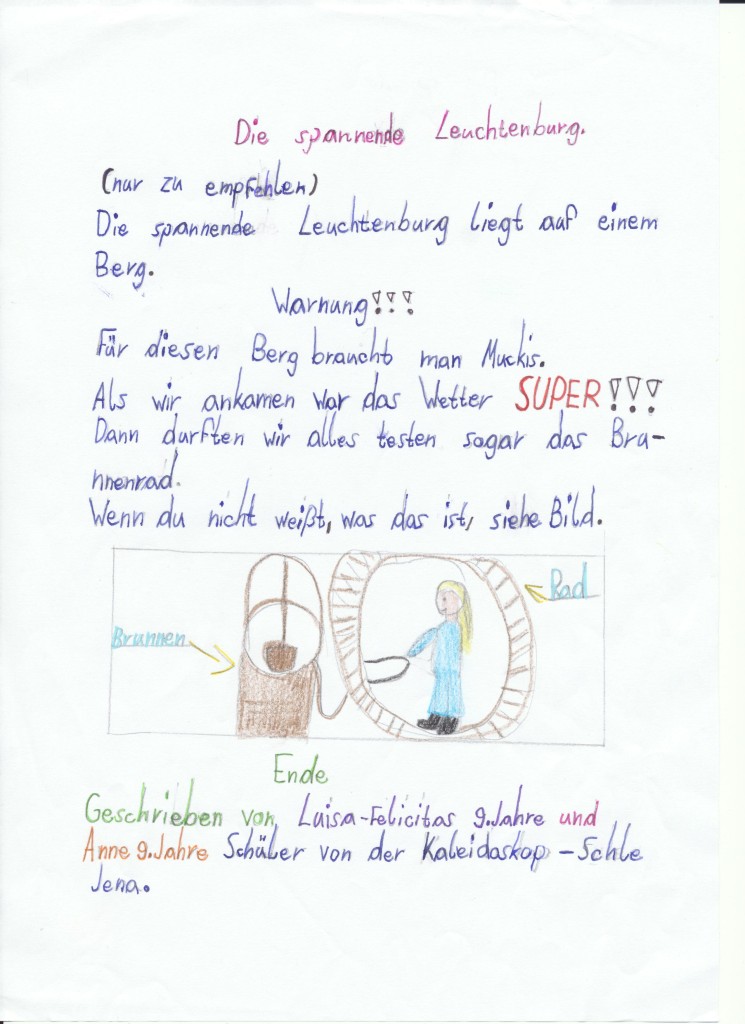 Die spannende Leuchtenburg.
(nur zu empfehlen)
Die spannende Leuchtenburg liegt auf einem
Berg.
Warnung!!!
Für diesen Berg braucht man Muckis.
Als wir ankamen war das Wetter SUPER!!!
Dann durften wir alles testen sogar das Bru-
nnenrad.
Wenn du nicht weißt, was das ist, siehe Bild.
Rad
Brunnen
Ende
Geschrieben von Luisa-Felicitas 9.Jahre und
Anne 9.Jahre Schüler von der Kaleidoskop-Schle
Jena.